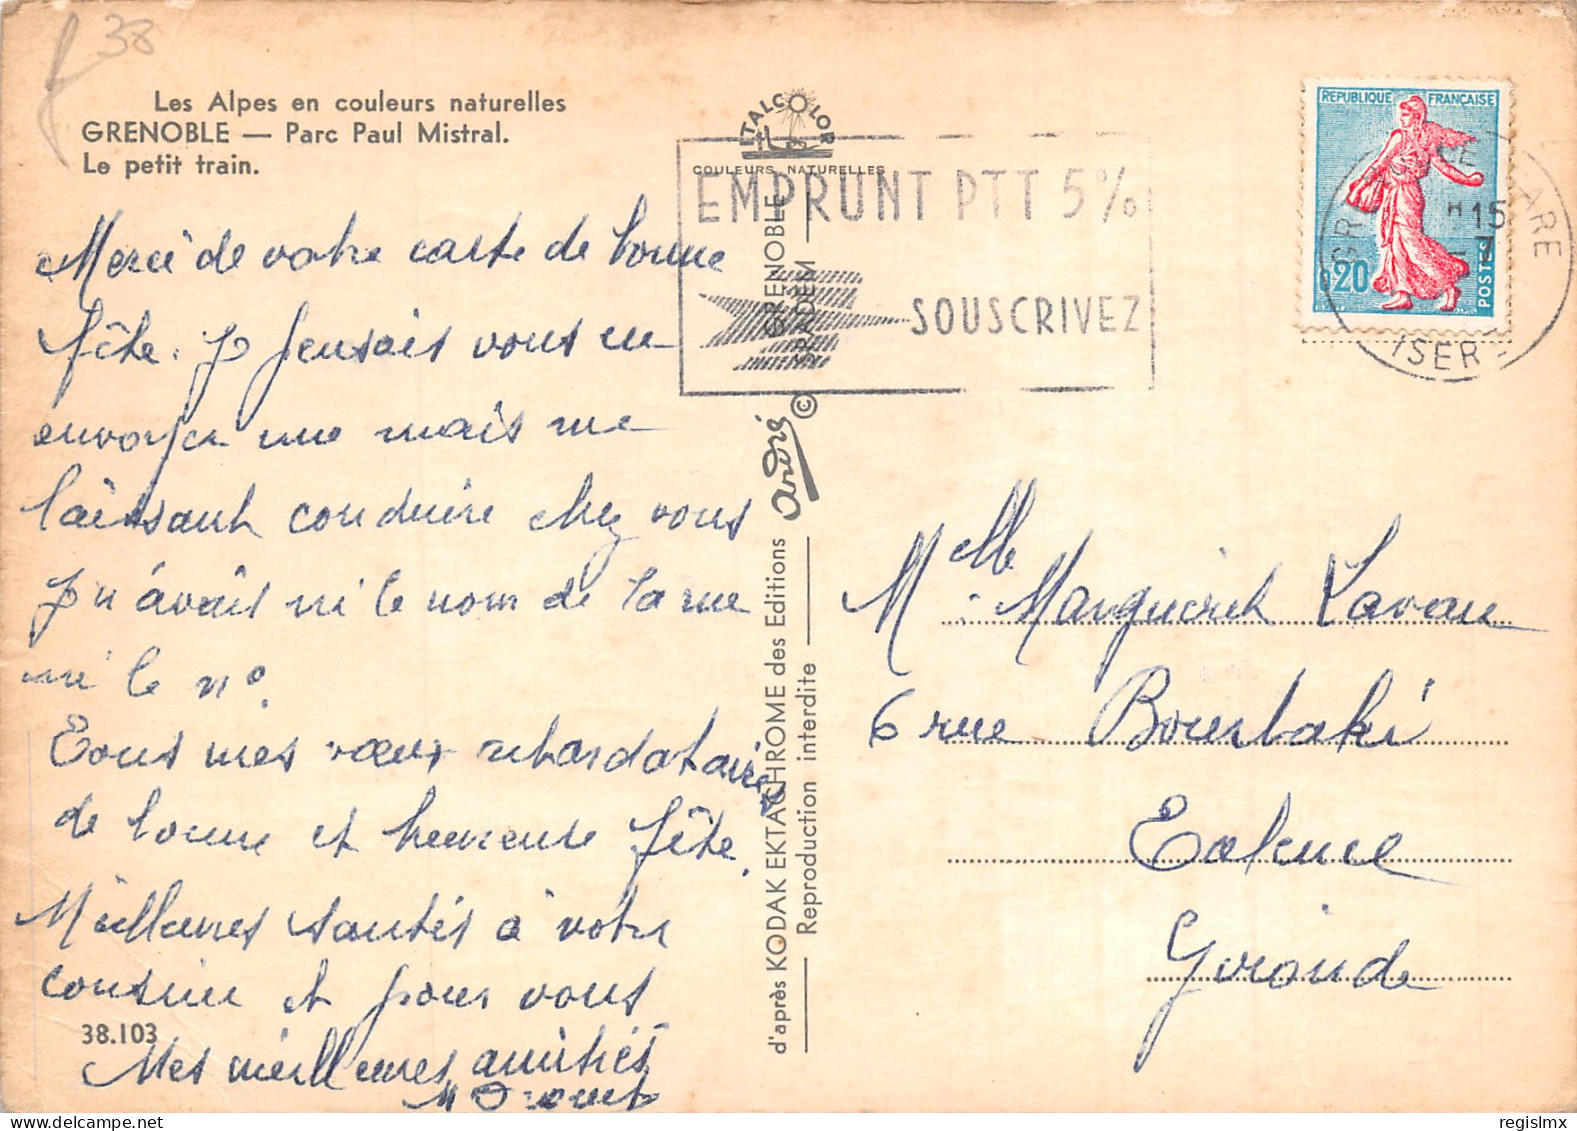 38
Les Alpes en couleurs naturelles
GRENOBLE — Parc Paul Mistral.
Le petit train.
Merci de votre carte de bonne
fête. Je pensais vous en
envoyer une mais me
laissant conduire chez vous
je n'avais ni le nom de la rue
ni le n°.
Tous mes vœux retardataires
de bonne et heureuse fête.
Meilleures santés à votre
cousine et pour vous
Mes meilleures amitiés
38.103
ITALCOLOR
COULEURS NATURELLES
EMPRUNT PTT 5%
SOUSCRIVEZ
GRENOBLE
SPADEM
©
André
d'après KODAK EKTACHROME des Editions
Reproduction interdite
REPUBLIQUE FRANÇAISE
0,20
POSTES
GRENOBLE GARE
15
7
ISERE
Melle Marguerite Laveau
6 rue Bourbaki
Talence
Gironde
© regislmx